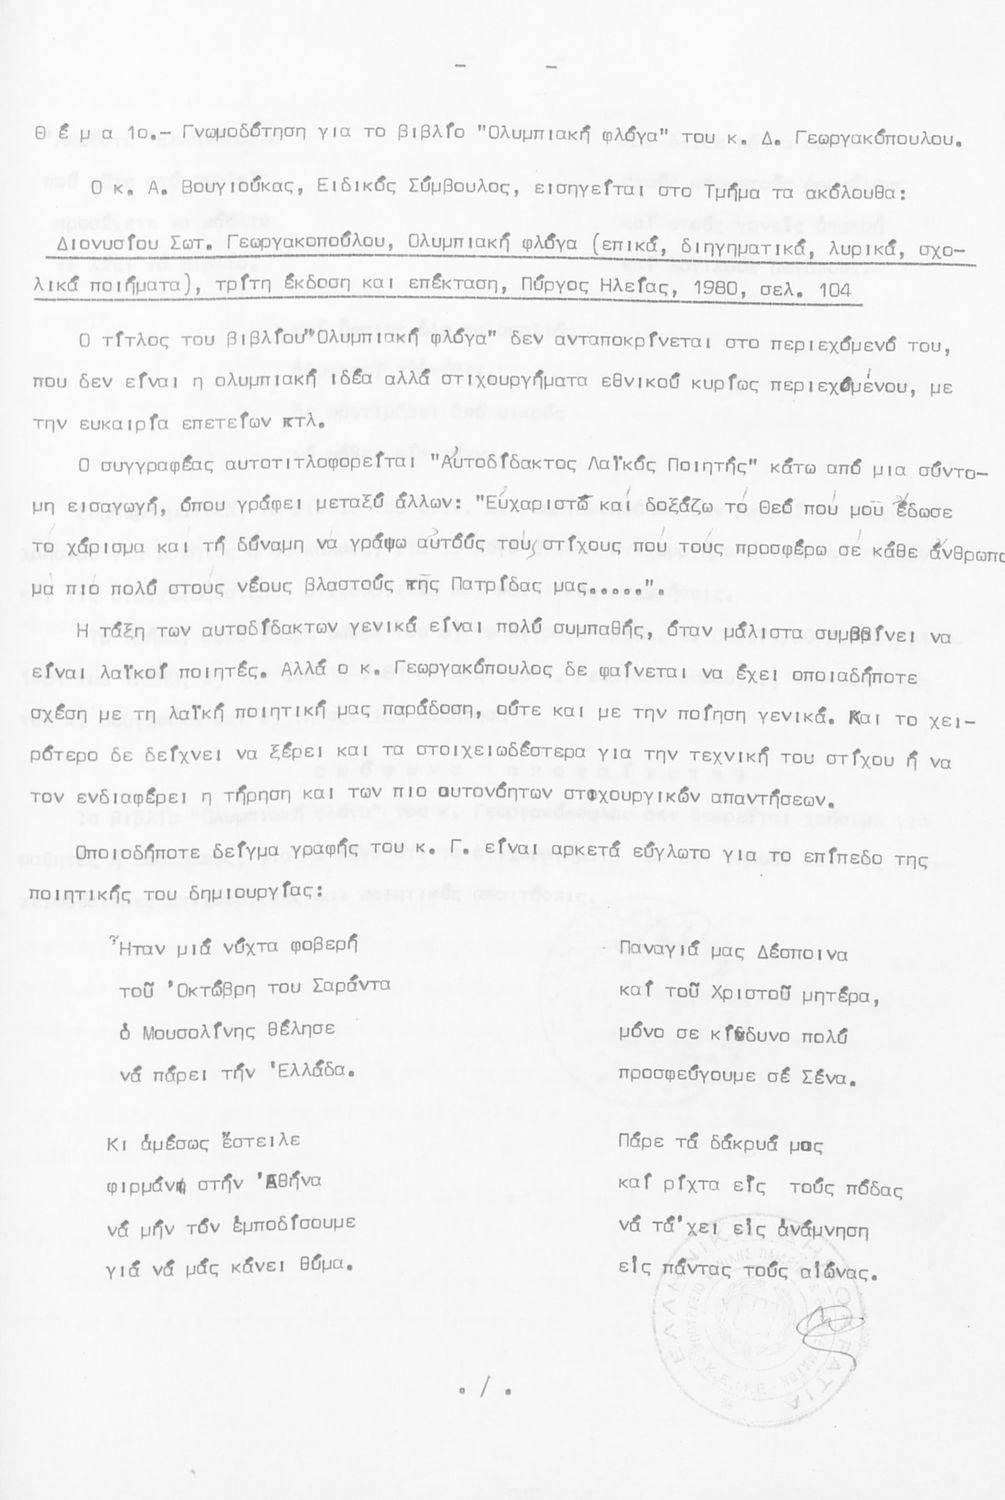 - -
Θ έ μ α 1ο.- Γνωμοδότηση για το βιβλίο "Ολυμπιακή φλόγα" του κ. Δ. Γεωργακόπουλου.
Ο κ. Α. Βουγιούκας, Ειδικός Σύμβουλος, εισηγείται στο Τμήμα τα ακόλουθα:
Διονυσίου Σωτ. Γεωργακοπούλου, Ολυμπιακή φλόγα (επικά, διηγηματικά, λυρικά, σχο-
λικά ποιήματα), τρίτη έκδοση και επέκταση, Πύργος Ηλείας, 1980, σελ. 104
Ο τίτλος του βιβλίου"Ολυμπιακή φλόγα" δεν ανταποκρίνεται στο περιεχόμενό του,
που δεν είναι η ολυμπιακή ιδέα αλλά στιχουργήματα εθνικού κυρίως περιεχομένου, με
την ευκαιρία επετείων κτλ.
Ο συγγραφέας αυτοτιτλοφορείται "Αὐτοδίδακτος Λαϊκός Ποιητής" κάτω από μια σύντο-
μη εισαγωγή, όπου γράφει μεταξύ άλλων: "Εὐχαριστῶ καί δοξάζω τό Θεό πού μοῦ ἔδωσε
τό χάρισμα καί τή δύναμη νά γράψω αὐτούς τούς στίχους πού τούς προσφέρω σέ κάθε ἄνθρωπο
μά πιό πολύ στούς νέους βλαστούς τῆς Πατρίδας μας.....".
Η τάξη των αυτοδίδακτων γενικά είναι πολύ συμπαθής, όταν μάλιστα συμβαίνει να
είναι λαϊκοί ποιητές. Αλλά ο κ. Γεωργακόπουλος δε φαίνεται να έχει οποιαδήποτε
σχέση με τη λαϊκή ποιητική μας παράδοση, ούτε και με την ποίηση γενικά. Και το χει-
ρότερο δε δείχνει να ξέρει και τα στοιχειωδέστερα για την τεχνική του στίχου ή να
τον ενδιαφέρει η τήρηση και των πιο αυτονόητων στιχουργικών απαντήσεων.
Οποιοδήποτε δείγμα γραφής του κ. Γ. είναι αρκετά εύγλωτο για το επίπεδο της
ποιητικής του δημιουργίας:
Ἦταν μιά νύχτα φοβερή
τοῦ 'Οκτώβρη του Σαράντα
ὁ Μουσολίνης θέλησε
νά πάρει τήν 'Ελλάδα.
Κι ἀμέσως ἔστειλε
φιρμάνι στήν 'Αθήνα
νά μήν τόν ἐμποδίσουμε
γιά νά μᾶς κάνει θύμα.
Παναγιά μας Δέσποινα
καί τοῦ Χριστοῦ μητέρα,
μόνο σε κίνδυνο πολύ
προσφεύγουμε σέ Σένα.
Πάρε τά δάκρυά μας
καί ρίχτα εἰς τούς πόδας
νά τά'χει εἰς ἀνάμνηση
εἰς πάντας τούς αἰώνας.
ΕΛΛΗΝΙΚΗ ΔΗΜΟΚΡΑΤΙΑ
Κ.Ε.Μ.Ε.
./.